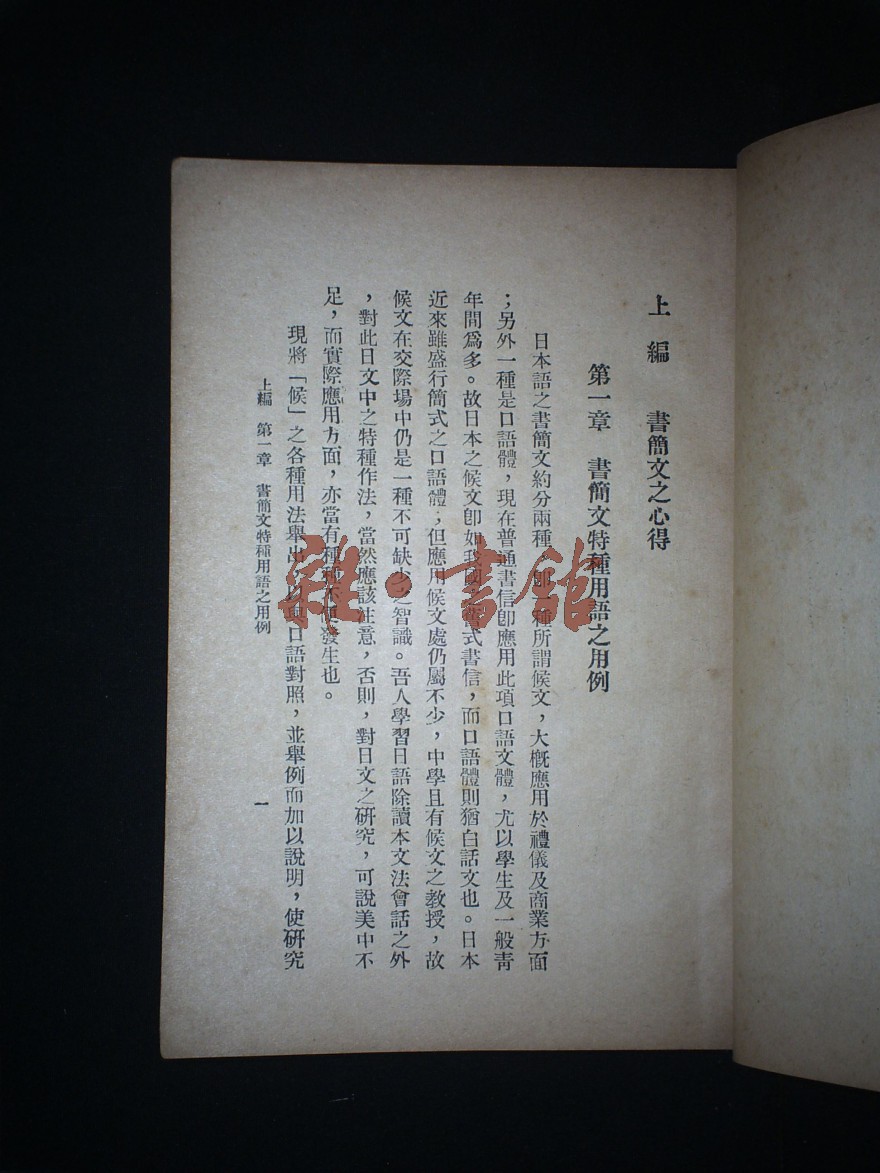 上編　書簡文之心得
第一章　書簡文特種用語之用例
日本語之書簡文約分兩種，卽一種所謂候文，大槪應用於禮儀及商業方面
；另外一種是口語體，現在普通書信卽應用此項口語文體，尤以學生及一般靑
年間爲多。故日本之候文卽如我國舊式書信，而口語體則猶白話文也。日本
近來雖盛行簡式之口語體；但應用候文處仍屬不少，中學且有候文之教授，故
候文在交際場中仍是一種不可缺少之智識。吾人學習日語除讀本文法會話之外
，對此日文中之特種作法，當然應該注意，否則，對日文之硏究，可說美中不
足，而實際應用方面，亦當有種種不便發生也。
現將「候」之各種用法舉出，以與口語對照，並舉例而加以說明，使硏究
上編　第一章　書簡文特種用語之用例
一
雜·書館